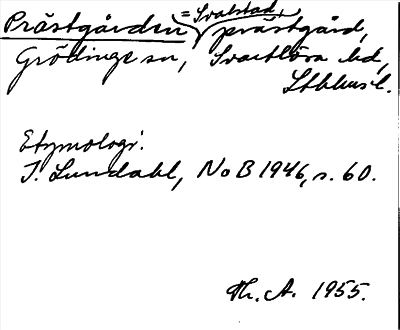 = Svalstad,
Prästgården prästgård,
Grödinge sn, Svartlösa hd,
Sthlms l.
Etymologi:
I. Lundahl, NoB 1946, s. 60.
Th. A. 1955.